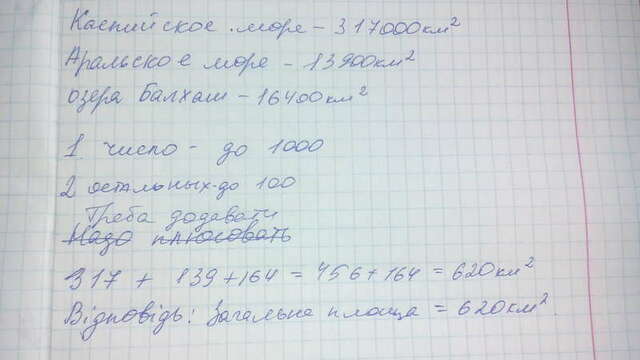 Каспийское море - 317000км²
Аральское море - 13900км²
озера Балхаш - 16400км²
1 число - до 1000
2 остальных-до 100
Треба додавати
Надо плюсовать
317 + 139+164 = 456+164 = 620км²
Відповідь: Загальна площа = 620км².